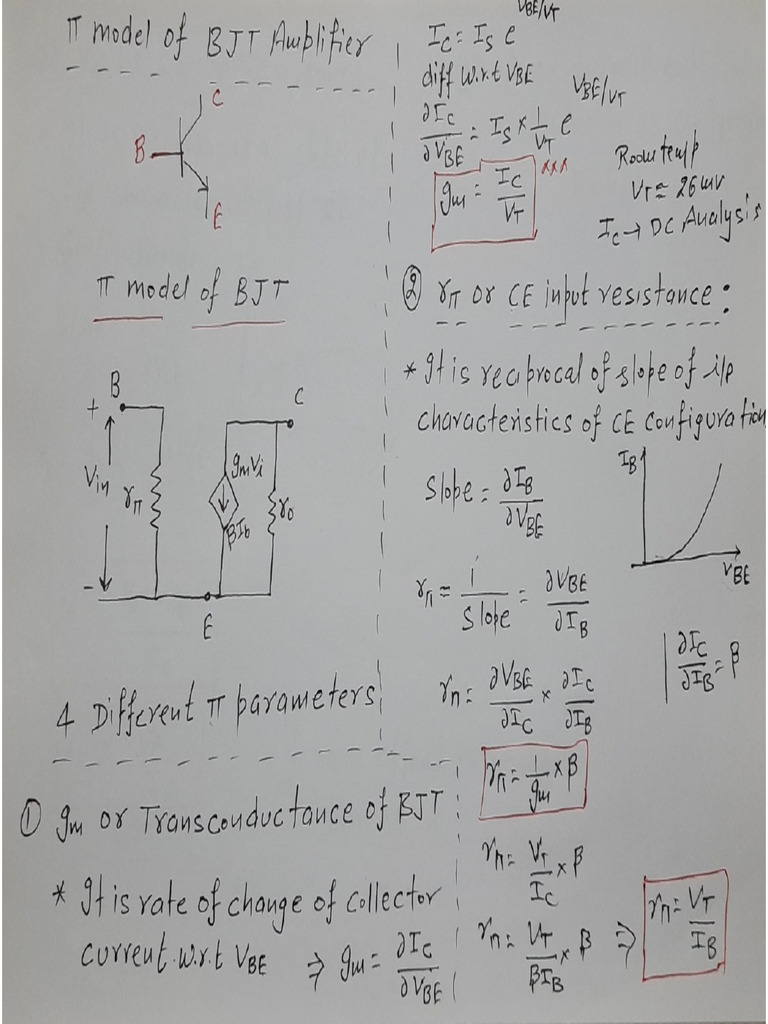 π model of BJT Amplifier
C
B
E
π model of BJT
B
C
+
Vin
rπ
gmVi
βIb
ro
-
E
4 Different π parameters
① gm or Transconductance of BJT
* It is rate of change of collector
current w.r.t VBE ⇒ gm = ∂IC/∂VBE
IC = IS e^VBE/VT
diff w.r.t VBE
∂IC/∂VBE = IS × 1/VT e^VBE/VT
gm = IC/VT
xxx
Room temp
VT ≈ 26mv
IC → DC Analysis
② rπ or CE input resistance :
* It is reciprocal of slope of i/p
characteristics of CE configuration
Slope = ∂IB/∂VBE
IB
VBE
rπ = 1/Slope = ∂VBE/∂IB
rπ = ∂VBE/∂IC × ∂IC/∂IB
∂IC/∂IB = β
rπ = 1/gm × β
rπ = VT/IC × β
rπ = VT/βIB × β ⇒ rπ = VT/IB